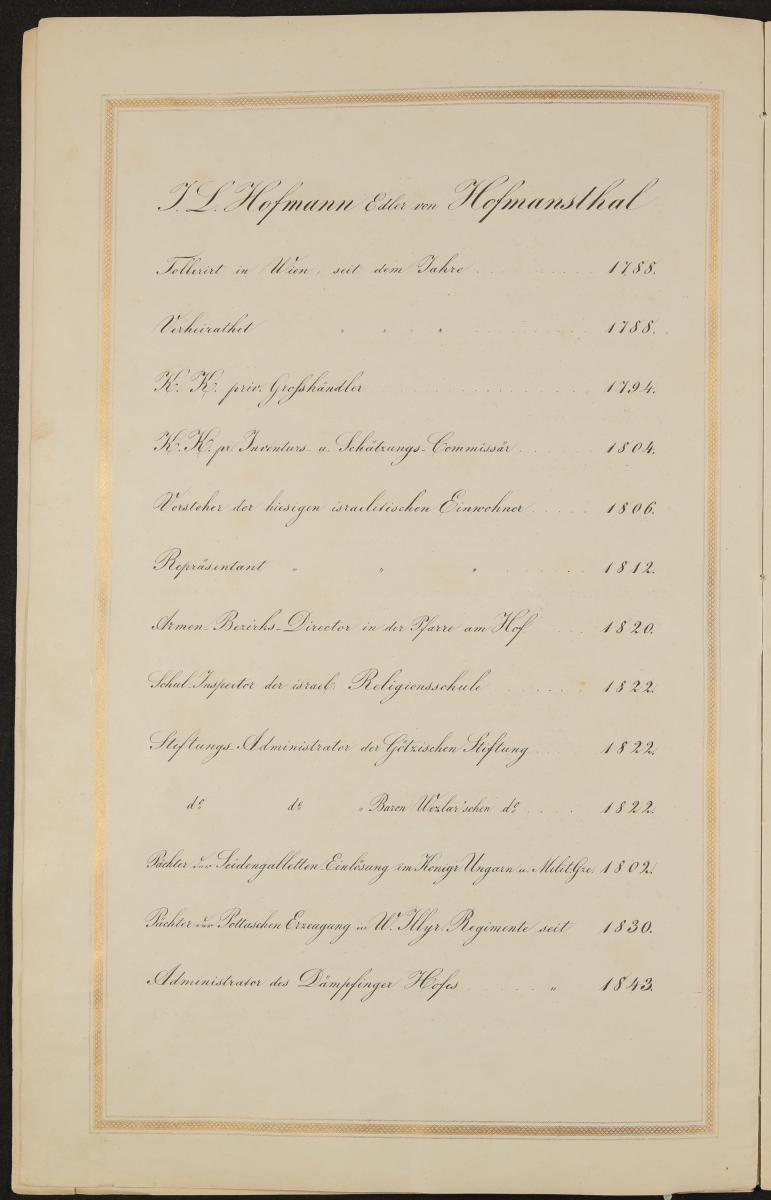 I. L. Hofmann Edler von Hofmansthal
Tollerirt in Wien, seit dem Jahre . . . . . . . . . . 1788.
Verheirathet " " " " . . . . . . . . . . 1788.
K. K. priv. Grosshändler . . . . . . . . . . 1794.
K. K. pr. Inventurs- u. Schätzungs-Commissär . . . . . 1804.
Vorsteher der hiesigen israelitischen Einwohner . . . . . 1806.
Repräsentant " " " . . . . . 1812.
Armen-Bezirks-Director in der Pfarre am Hof . . . . 1820.
Schul-Inspector der israel: Religionsschule . . . . . . . 1822.
Stiftungs-Administrator der Götzischen Stiftung . . . . 1822.
do do " Baron Wezlar'schen do . . . . 1822.
Pächter der Seidengalletten-Einlösung im Königr. Ungarn u. Milit. Gze. 1802.
Pächter der Pottaschen Erzeugung in W. Illyr. Regimente seit 1830.
Administrator des Dämpfinger Hofes . . . . . . " 1843.